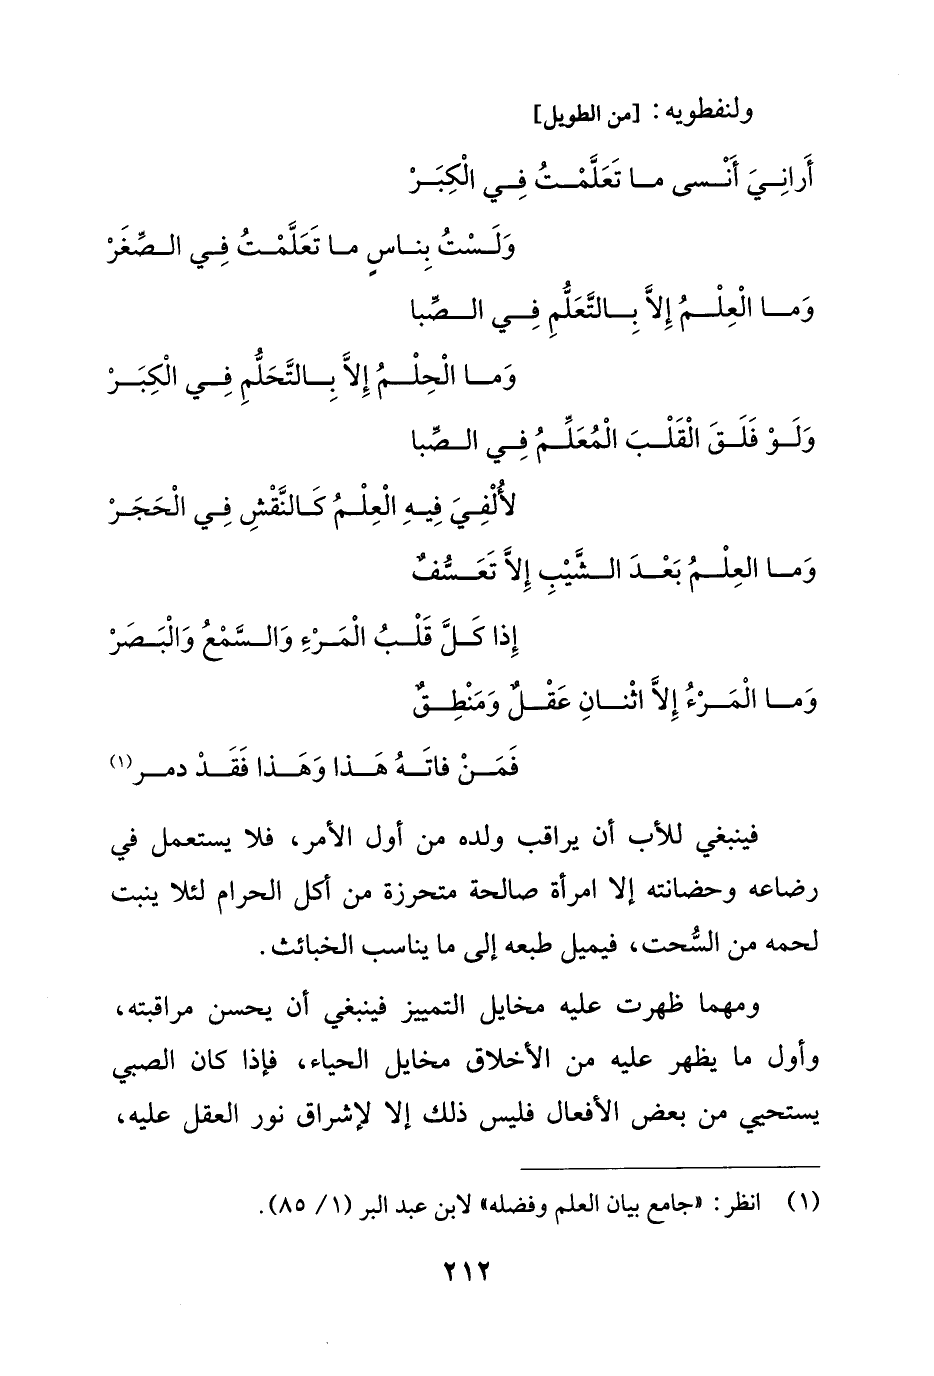 ولنفطويه: [من الطويل]
أَرانِيَ أَنْسى ما تَعَلَّمْتُ فِي الْكِبَرْ
وَلَسْتُ بِناسٍ ما تَعَلَّمْتُ فِي الصِّغَرْ
وَما الْعِلْمُ إِلاَّ بِالتَّعَلُّمِ فِي الصِّبا
وَما الْحِلْمُ إِلاَّ بِالتَّحَلُّمِ فِي الْكِبَرْ
وَلَوْ فَلَقَ الْقَلْبَ الْمُعَلِّمُ فِي الصِّبا
لأُلْفِيَ فِيهِ الْعِلْمُ كَالنَّقْشِ فِي الْحَجَرْ
وَما العِلْمُ بَعْدَ الشَّيْبِ إِلاَّ تَعَسُّفٌ
إِذا كَلَّ قَلْبُ الْمَرْءِ وَالسَّمْعُ وَالْبَصَرْ
وَما الْمَرْءُ إِلاَّ اثْنانِ عَقْلٌ وَمَنْطِقٌ
فَمَنْ فاتَهُ هَذا وَهَذا فَقَدْ دمر(١)
فينبغي للأب أن يراقب ولده من أول الأمر، فلا يستعمل في
رضاعه وحضانته إلا امرأة صالحة متحرزة من أكل الحرام لئلا ينبت
لحمه من السُّحت، فيميل طبعه إلى ما يناسب الخبائث.
ومهما ظهرت عليه مخايل التمييز فينبغي أن يحسن مراقبته،
وأول ما يظهر عليه من الأخلاق مخايل الحياء، فإذا كان الصبي
يستحيي من بعض الأفعال فليس ذلك إلا لإشراق نور العقل عليه،
(١) انظر: «جامع بيان العلم وفضله» لابن عبد البر (١/ ٨٥).
٢١٢